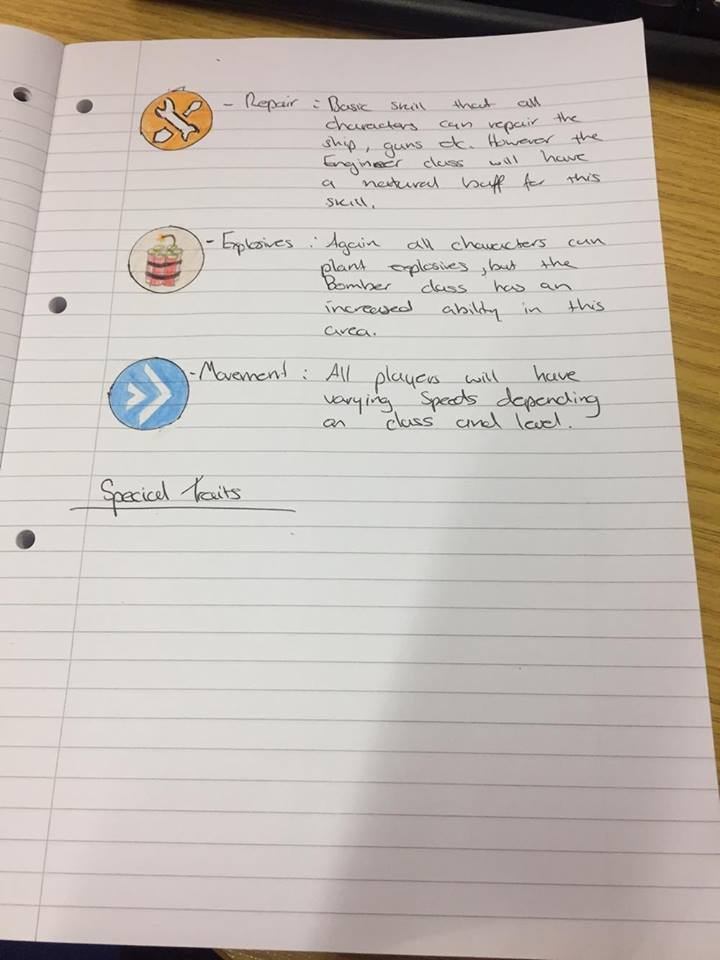 - Repair : Basic skill that all
characters can repair the
ship, guns etc. However the
Engineer class will have
a natural buff for this
skill.
- Explosives : Again all characters can
plant explosives, but the
Bomber class has an
increased ability in this
area.
- Movement : All players will have
varying speeds depending
on class and level.
Special Traits